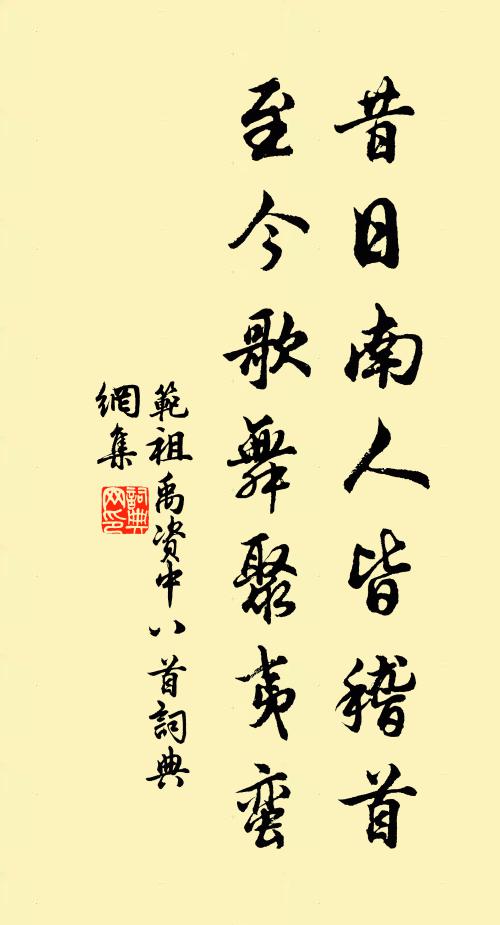 昔日南人皆稽首
至今歌舞聚夷蛮
範祖禹资中八首詞典
網集
詞典
网印